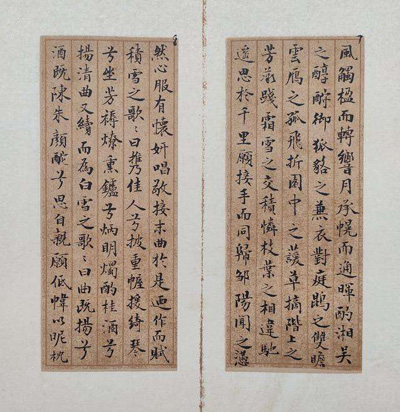 7
風觸楹而轉響月承幌而通暉酌湘吳
之醇酎御狐貉之兼衣對庭鵾之雙瞻
雲鴈之孤飛折園中之萲草摘階上之
芳薇踐霜雪之交積憐枝葉之相違馳
遙思於千里願接手而同歸鄒陽聞之懣
8
然心服有懷妍唱敬接末曲於是迺作而賦
積雪之歌〻曰攜佳人兮披重幄援綺琴
兮坐芳褥燎熏鑪兮炳明燭酌桂酒兮
揚清曲又續而為白雪之歌〻曰曲既揚兮
酒既陳朱顏酡兮思自親願低幃以昵枕